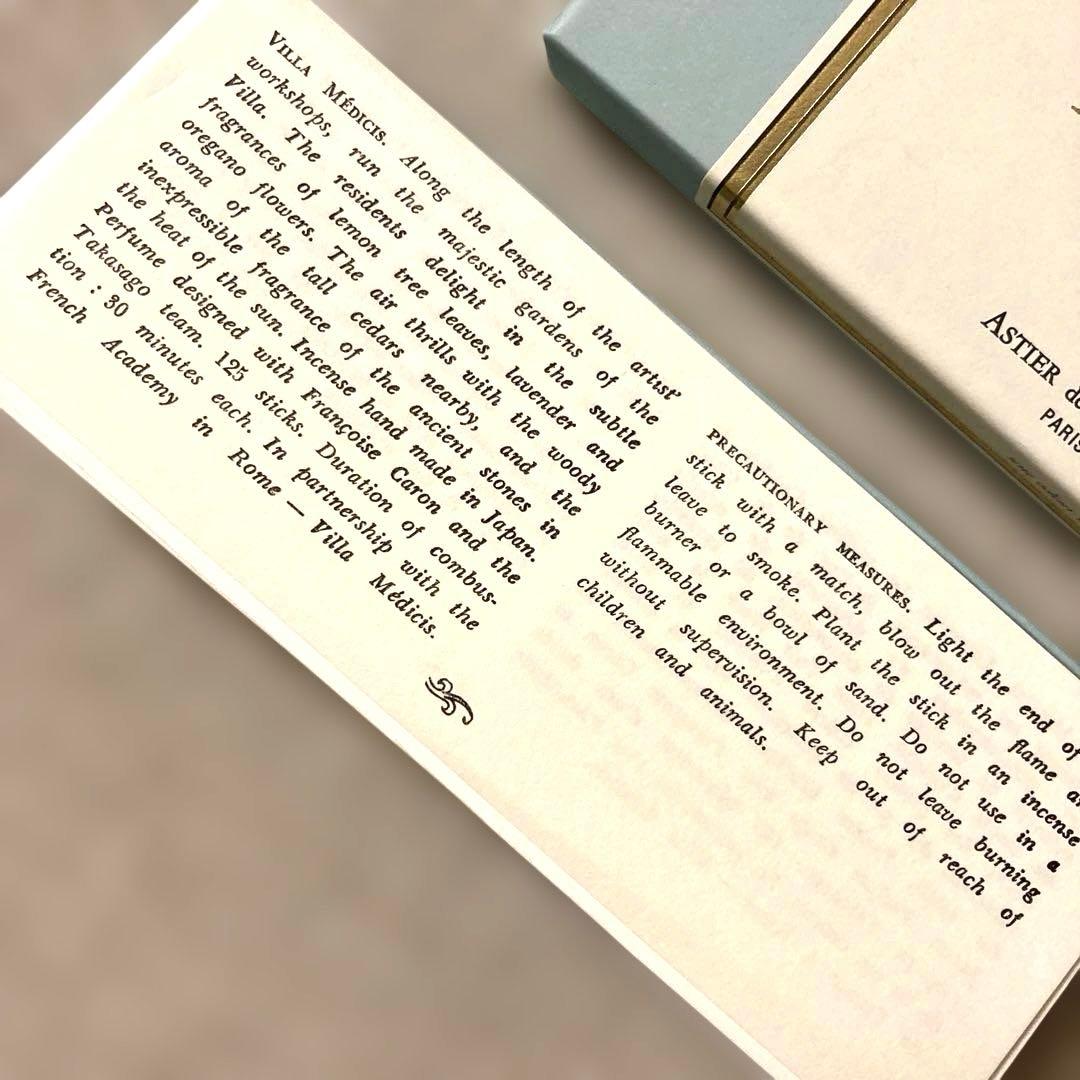 VILLA MÉDICIS. Along the length of the artist'
workshops, run the majestic gardens of the
Villa. The residents delight in the subtle
fragrances of lemon tree leaves, lavender and
oregano flowers. The air thrills with the woody
aroma of the tall cedars nearby, and the
inexpressible fragrance of the ancient stones in
the heat of the sun. Incense hand made in Japan.
Perfume designed with Françoise Caron and the
Takasago team. 125 sticks. Duration of combus-
tion : 30 minutes each. In partnership with the
French Academy in Rome — Villa Médicis.
PRECAUTIONARY MEASURES. Light the end of
stick with a match, blow out the flame
leave to smoke. Plant the stick in an incense
burner or a bowl of sand. Do not use in a
flammable environment. Do not leave burning
without supervision. Keep out of reach of
children and animals.
ASTIER
PARIS